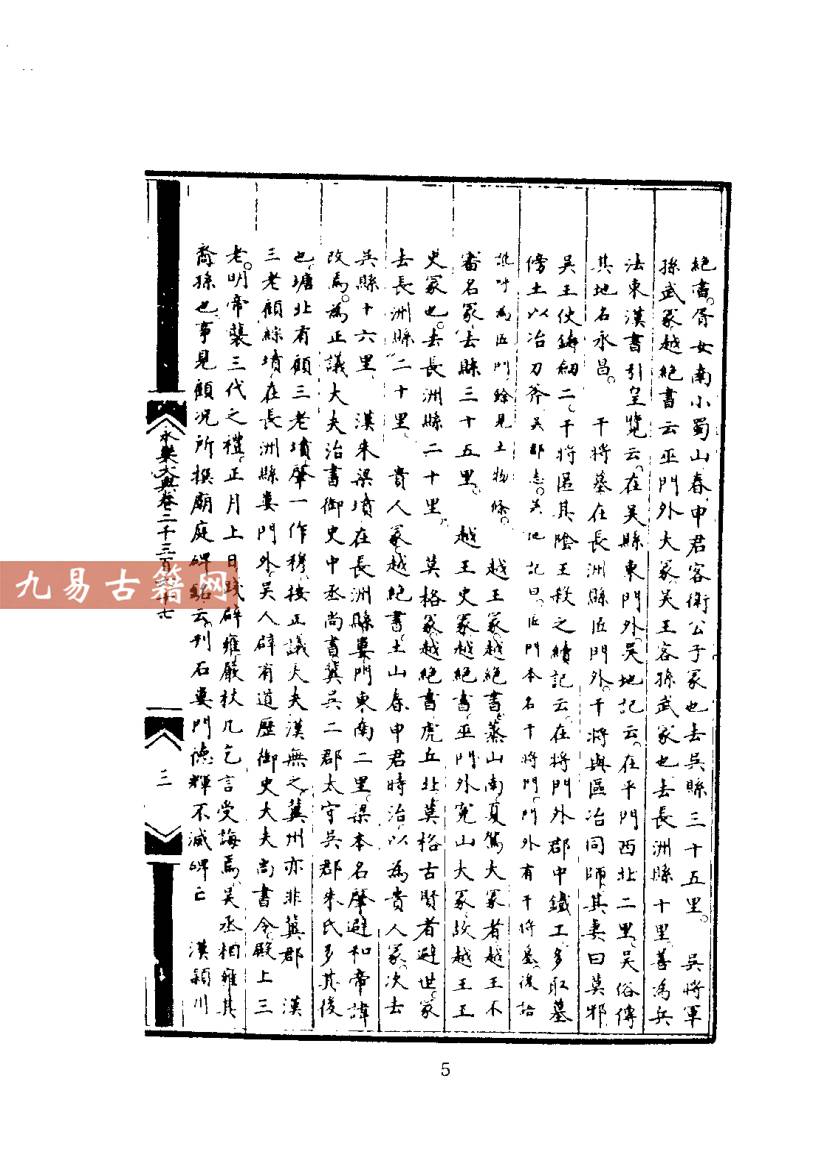 絕書。胥女南小蜀山春申君客衛公子冢也去吳縣三十五里。 吳將軍
孫武冢越絕書云巫門外大冢吳王客孫武冢也去長洲縣十里善為兵
法東漢書引皇覽云在吳縣東門外。吳地記云在平門西北二里。吳俗傳
其地名永昌。 干將墓在長洲縣匠門外。干將與區冶同師。其妻曰莫邪
吳王使鑄劒二。干將匿其陰王殺之續記云。在將門外郡中鐵工。多取墓
傍土以冶刀斧吳郡志。吳地記曰。匠門本名干將門。門外有干將墓。後語
訛呼為匠門餘見土物條。 越王冢。越絕書。蒸山南夏駕大冢者越王不
審名冢去縣三十五里。 越王史冢。越絕書。巫門外冤山大冢。故越王王
史冢也。去長洲縣二十里。 莫格冢。越絕書虎丘北莫格古賢者避世。冢
去長洲縣二十里。 貴人冢。越絕書。土山春申君時治。以為貴人冢。次去
吳縣十六里。 漢朱梁墳。在長洲縣婁門東南二里。梁本名肇。避和帝諱
改焉。為正議大夫治書御史中丞尚書冀吳二郡太守吳郡朱氏多其後
也。塘北有顧三老墳肇一作穆。按正議大夫漢無之。冀州亦非冀郡 漢
三老顧綜墳。在長洲縣婁門外。吳人辟有道歷御史大夫尚書令。殿上三
老。明帝襲三代之禮。正月上日踐辟雍嚴杖几乞言受誨焉。吳丞相雍其
裔孫也。事見顧況所撰廟庭碑銘云。刊石婁門。德輝不滅碑亡 漢潁川
永樂大典卷二千三百 十七
三
九易古籍网
5